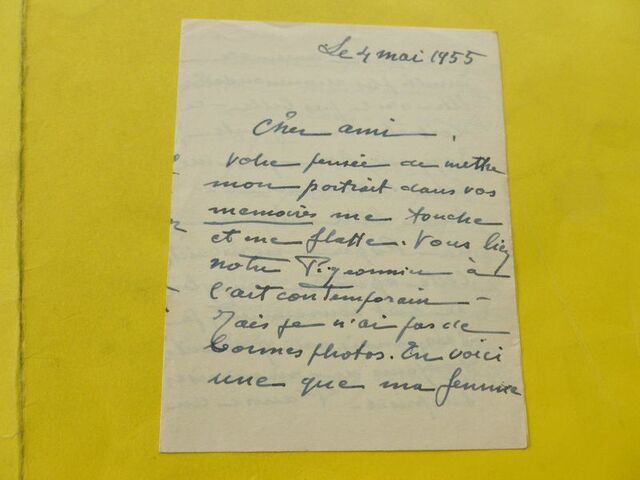 Le 4 mai 1955
Cher ami,
votre pensée de mettre
mon portrait dans vos
memoires me touche
et me flatte. Vous liez
notre Pigeonnier à
l'art contemporain -
Mais je n'ai pas de
bonnes photos. En voici
une que ma femme